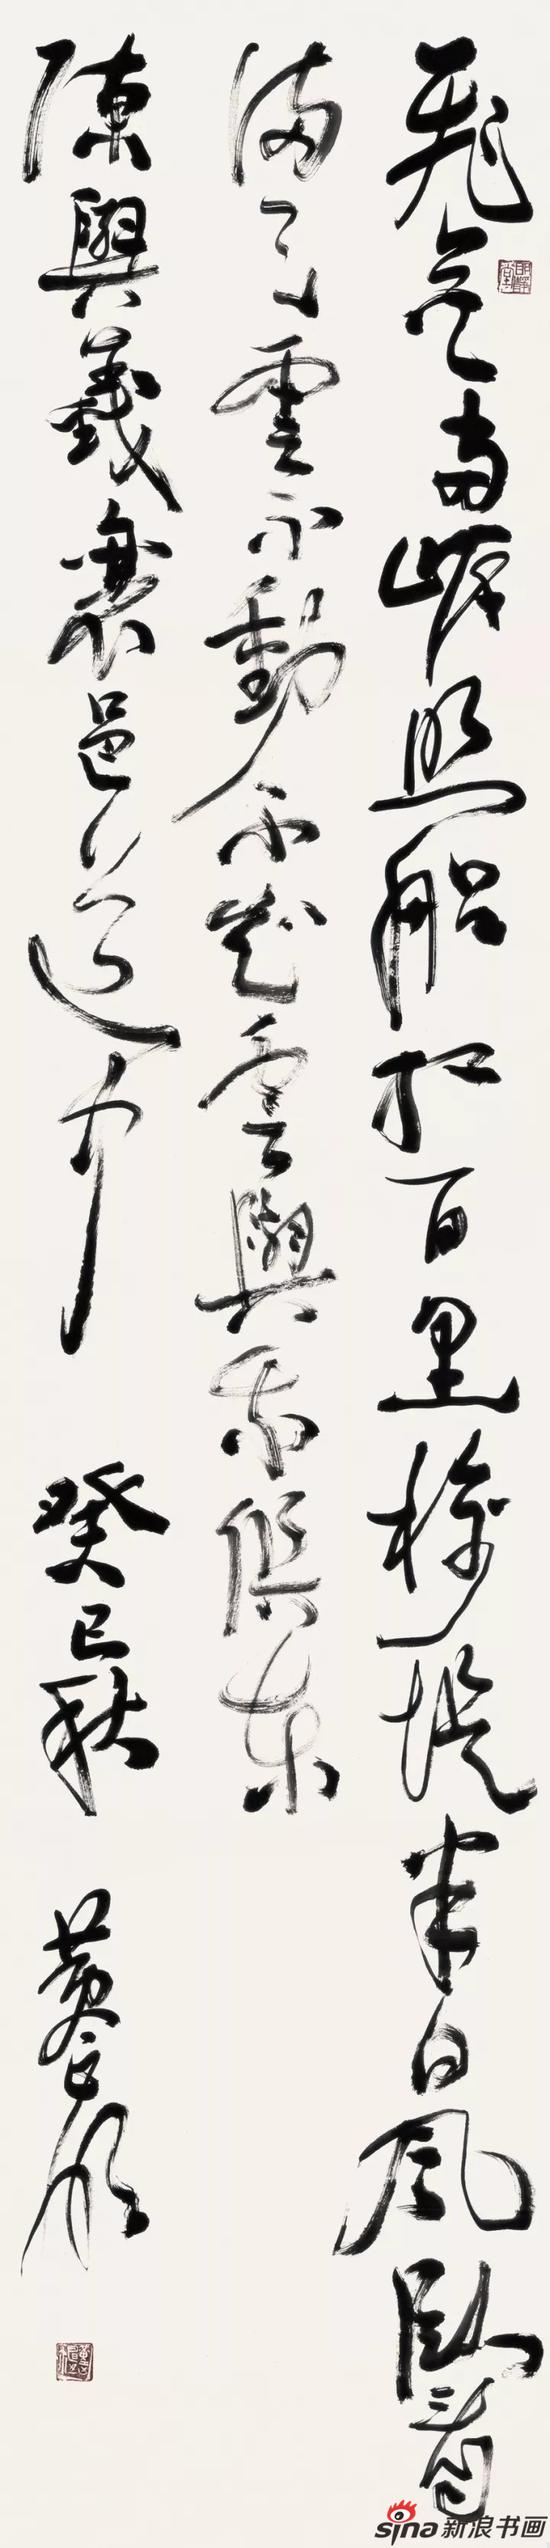 飛花兩岸照船紅百里榆堤半日風臥看
滿天雲不動不知雲與我俱東
陳與義襄邑道中 癸巳秋
sina新浪书画